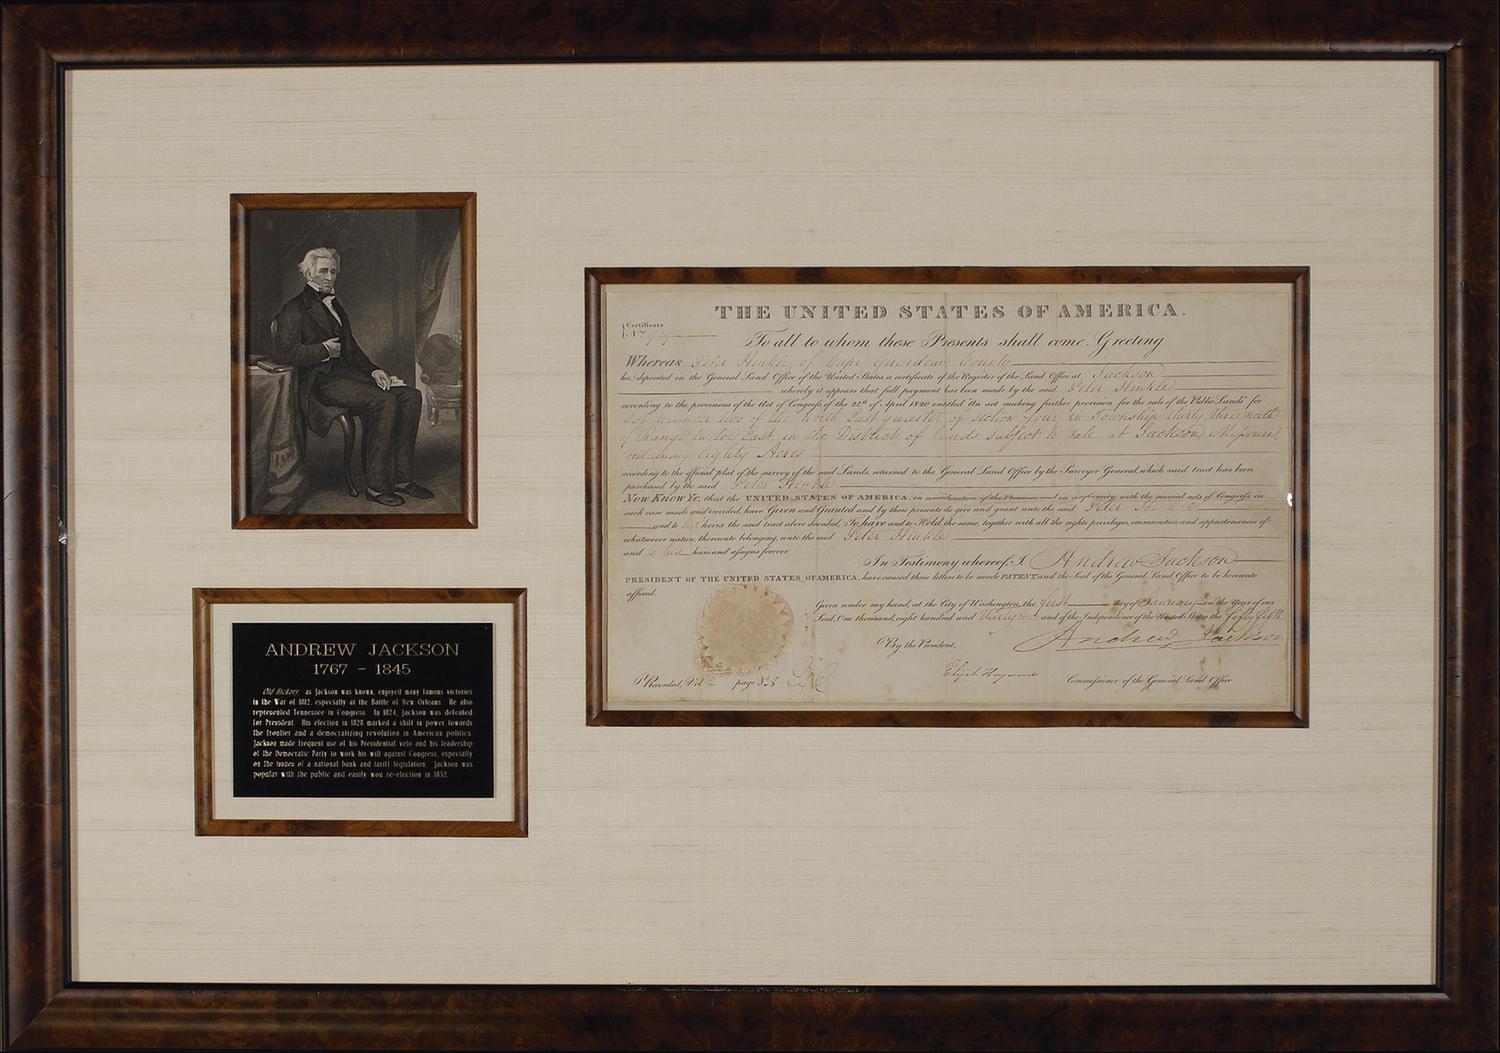 THE UNITED STATES OF AMERICA.
Certificate
No.
To all to whom these Presents shall come, Greeting
Whereas Peter Hinkle, of Cape Girardeau County
has deposited in the General Land Office of the United States a certificate of the Register of the Land Office at Jackson
whereby it appears that full payment has been made by the said Peter Hinkle
according to the provisions of the Act of Congress of the 22nd of April 1820 entitled "An act making further provision for the sale of the Public Lands" for
Lot number two of the North East quarter of section four in Township thirty three north
of Range twelve East in the District of Lands subject to sale at Jackson, Missouri,
containing Eighty Acres
according to the official plat of the survey of the said Lands, returned to the General Land Office by the Surveyor General, which said tract has been
purchased by the said Peter Hinkle
Now Know Ye, that the UNITED STATES OF AMERICA, in consideration of the Premises and in conformity with the several acts of Congress, in
such case made and provided, have Given and Granted and by these presents do give and grant unto the said Peter Hinkle
and to his heirs the said tract above described, To have and to Hold the same, together with all the rights, privileges, immunities, and appurtenances of
whatsoever nature, thereunto belonging, unto the said Peter Hinkle
and to his heirs and assigns forever.
In Testimony whereof, I, Andrew Jackson
PRESIDENT OF THE UNITED STATES OF AMERICA, have caused these letters to be made PATENT, and the Seal of the General Land Office to be hereunto
affixed.
Given under my hand, at the City of Washington, the first day of January in the Year of our
Lord, One thousand, eight hundred and thirty one and of the Independence of the United States the fifty fifth
By the President, Andrew Jackson
Elijah Hayward Commissioner of the General Land Office
Recorded, Vol page 338
ANDREW JACKSON
1767 - 1845
Old Hickory, as Jackson was known, enjoyed many famous victories
in the War of 1812, especially at the Battle of New Orleans. He also
represented Tennessee in Congress. In 1824, Jackson was defeated
for President. His election in 1828 marked a shift in power towards
the frontier and a democratizing revolution in American politics.
Jackson made frequent use of his Presidential veto and his leadership
of the Democratic Party to work his will against Congress, especially
on the issues of a national bank and tariff legislation. Jackson was
popular with the public and easily won re-election in 1832.